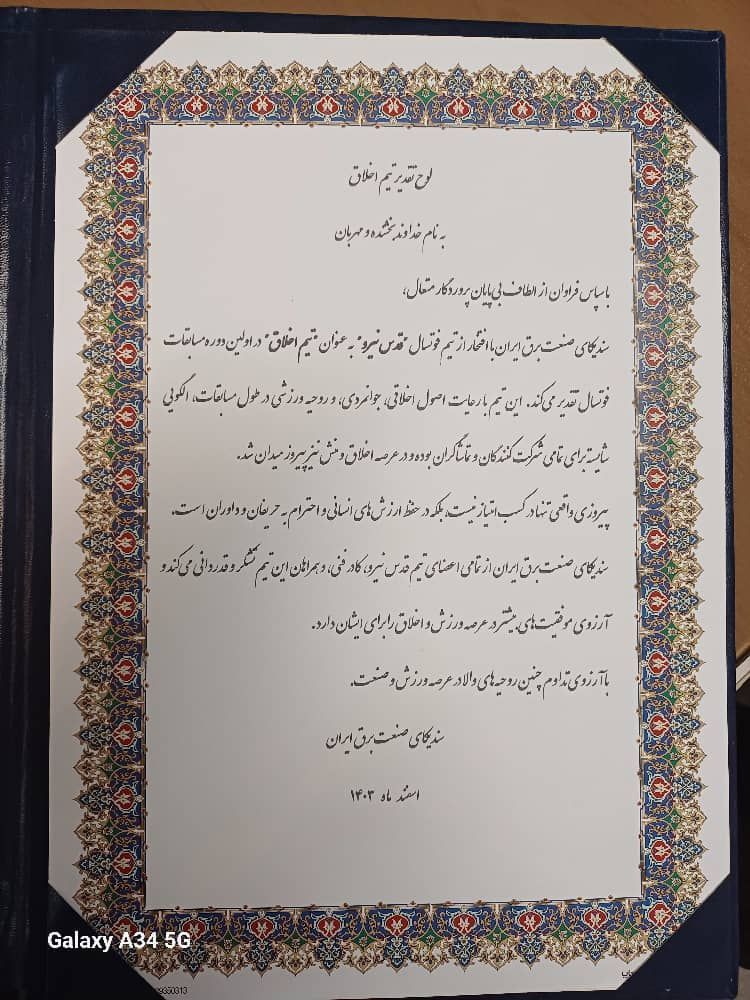 لوح تقدیر تیم اخلاق
به نام خداوند بخشنده و مهربان
با سپاس فراوان از الطاف بی‌پایان پروردگار متعال،
سندیکای صنعت برق ایران با افتخار از تیم فوتسال "قدس نیرو" به عنوان "تیم اخلاق" در اولین دوره مسابقات
فوتسال تقدیر می‌کند. این تیم با رعایت اصول اخلاقی، جوانمردی، و روحیه ورزشی در طول مسابقات، الگویی
شایسته برای تمامی شرکت‌کنندگان و تماشاگران بوده و در عرصه اخلاق و منش نیز پیروز میدان شد.
پیروزی واقعی تنها در کسب امتیاز نیست، بلکه در حفظ ارزش‌های انسانی و احترام به حریفان و داوران است.
سندیکای صنعت برق ایران از تمامی اعضای تیم قدس نیرو، کادر فنی، و همراهان این تیم تشکر و قدردانی می‌کند و
آرزوی موفقیت‌های بیشتر در عرصه ورزش و اخلاق را برای ایشان دارد.
با آرزوی تداوم چنین روحیه‌های والا در عرصه ورزش و صنعت.
سندیکای صنعت برق ایران
اسفند ماه ۱۴۰۳
Galaxy A34 5G